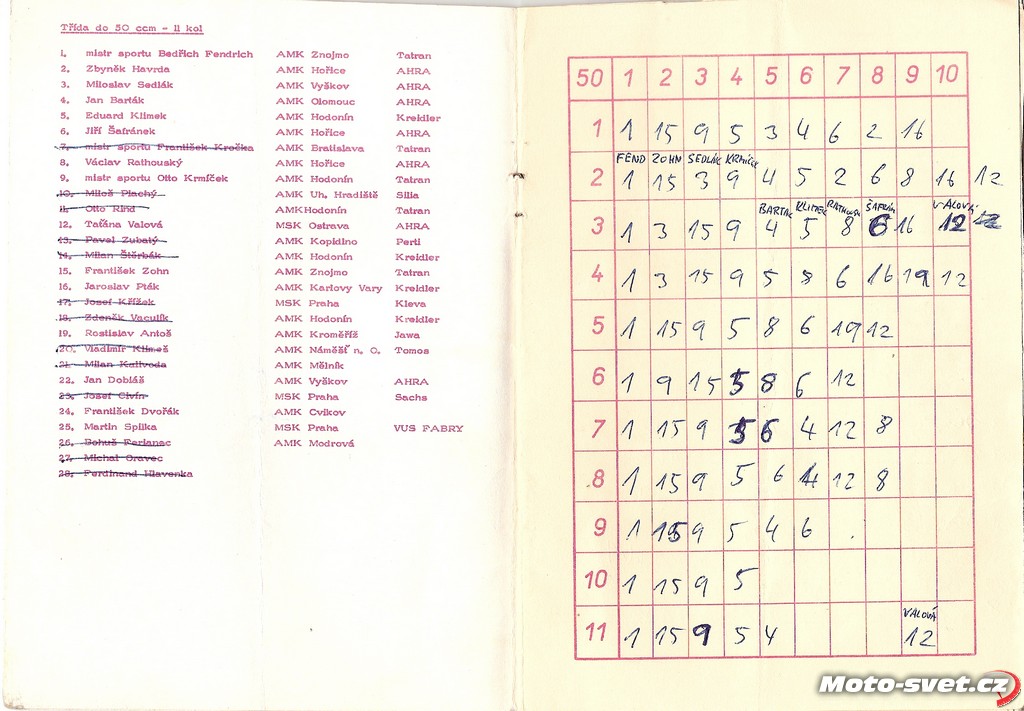 Třída do 50 ccm - 11 kol
1. mistr sportu Bedřich Fendrich AMK Znojmo Tatran
2. Zbyněk Havrda AMK Hořice AHRA
3. Miloslav Sedlák AMK Vyškov AHRA
4. Jan Barták AMK Olomouc AHRA
5. Eduard Klimek AMK Hodonín Kreidler
6. Jiří Šafránek AMK Hořice AHRA
7. mistr sportu František Kročka AMK Bratislava Tatran
8. Václav Rathouský AMK Hořice AHRA
9. mistr sportu Otto Krmíček AMK Hodonín Tatran
10. Miloš Plachý AMK Uh. Hradiště Silia
11. Otto Rind AMKHodonín Tatran
12. Taťána Valová MSK Ostrava AHRA
13. Pavel Zubatý AMK Kopidlno Perti
14. Milan Štěrbák AMK Hodonín Kreidler
15. František Zohn AMK Znojmo Tatran
16. Jaroslav Pták AMK Karlovy Vary Kreidler
17. Josef Křížek MSK Praha Kleva
18. Zdeněk Vaculík AMK Hodonín Kreidler
19. Rostislav Antoš AMK Kroměříž Jawa
20. Vladimír Klimeš AMK Náměšť n. O. Tomos
21. Milan Kalivoda AMK Mělník
22. Jan Dobiáš AMK Vyškov AHRA
23. Josef Civín MSK Praha Sachs
24. František Dvořák AMK Cvikov
25. Martin Splika MSK Praha VUS FABRY
26. Bohuš Perianec AMK Modrová
27. Michal Oravec
28. Ferdinand Hlavenka
50 1 2 3 4 5 6 7 8 9 10
1 1 15 9 5 3 4 6 2 16
FEND ZOHN SEDLÁK KRMÍČEK
2 1 15 3 9 4 5 2 6 8 16 12
BARTÁK KLIMEK RATHOUSK ŠAFRÁN VALOVÁ
3 1 3 15 9 4 5 8 6 16 12
4 1 3 15 9 5 8 6 16 19 12
5 1 15 9 5 8 6 19 12
6 1 9 15 5 8 6 12
7 1 15 9 5 6 4 12 8
8 1 15 9 5 6 4 12 8
9 1 15 9 5 4 6
10 1 15 9 5
VALOVÁ
11 1 15 9 5 4 12
Moto-svet.cz